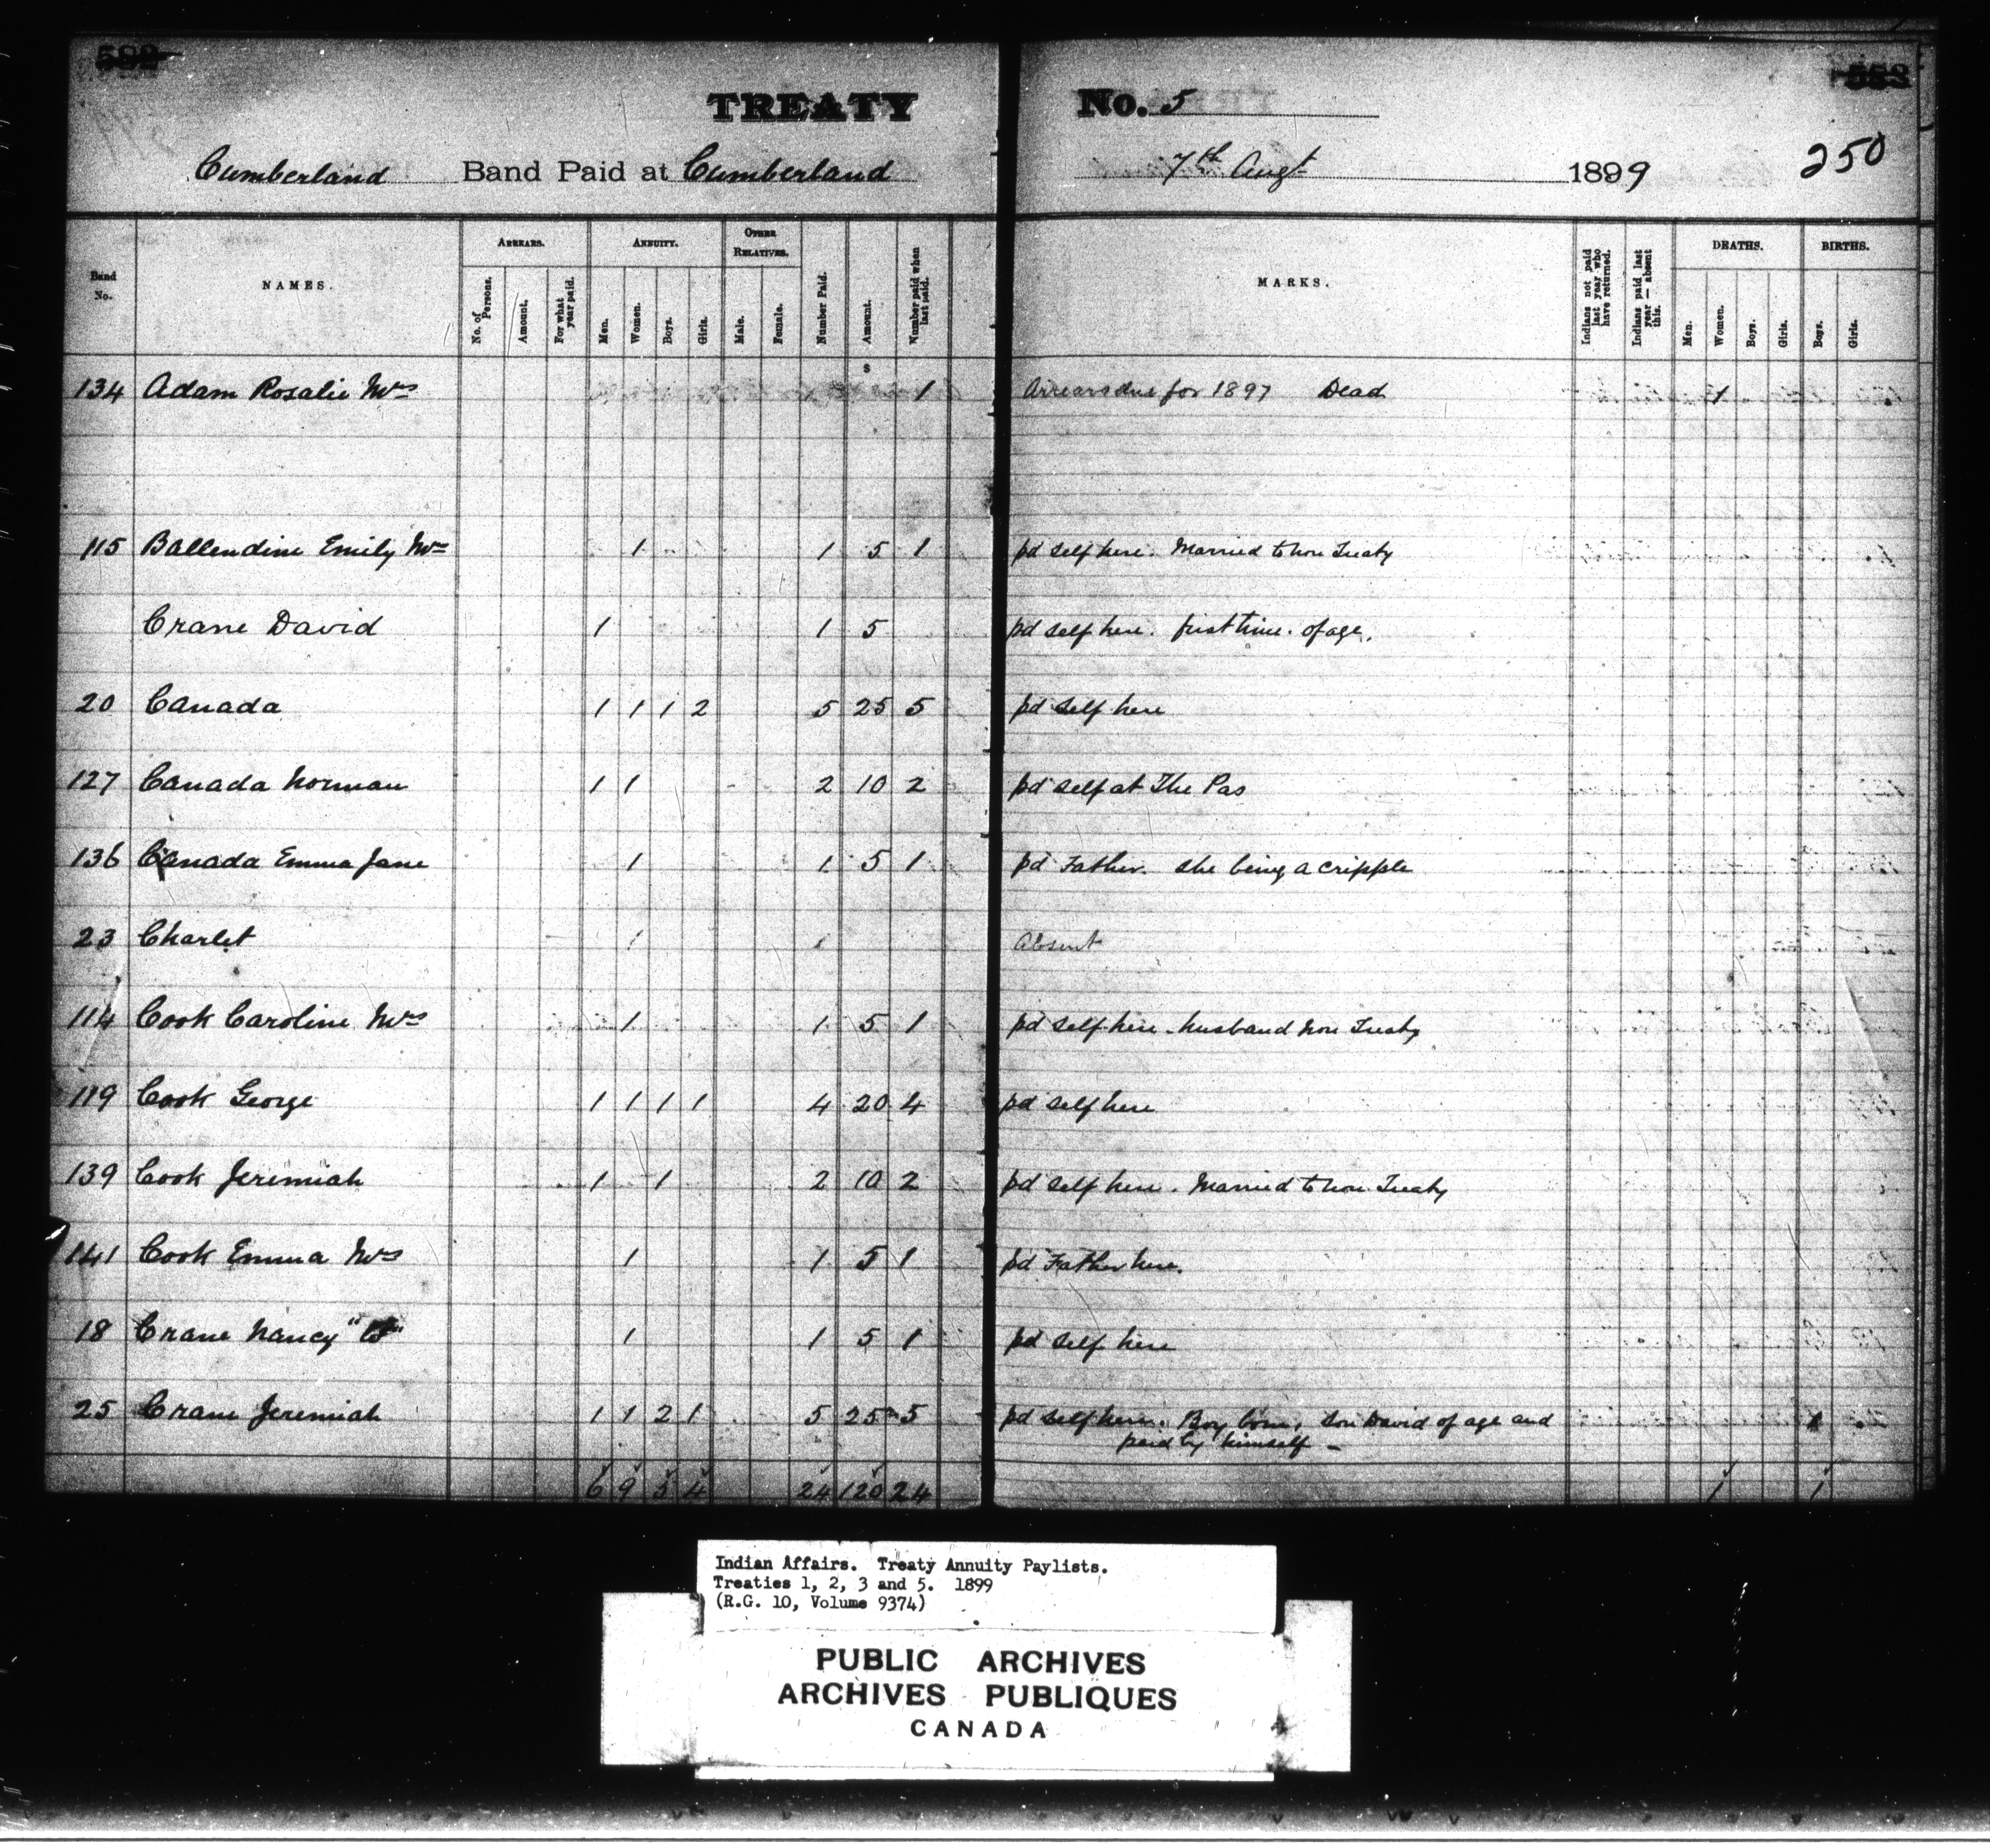 TREATY No. 5
250
Cumberland Band Paid at Cumberland 7th Augt 1899
Band No. NAMES. ARREARS. No. of Persons. Amount. For what year paid. ANNUITY. Men. Women. Boys. Girls. OTHER RELATIVES. Male. Female. Number Paid. Amount. Number paid when last paid. MARKS. Indians not paid last year who have returned. Indians paid last year — absent this. DEATHS. Men. Women. Boys. Girls. BIRTHS. Boys. Girls.
$
134 Adam Rosalie Mrs 1 Arrears due for 1897 Dead 1
115 Ballendine Emily Mrs 1 1 5 1 pd self here. Married to non Treaty
Crane David 1 1 5 pd self here. first time. of age.
20 Canada 1 1 1 2 5 25 5 pd self here
127 Canada Norman 1 1 2 10 2 pd self at The Pas
136 Canada Emma Jane 1 1 5 1 pd Father. she being a cripple
23 Charlet 1 1 Absent
114 Cook Caroline Mrs 1 1 5 1 pd self here - husband non Treaty
119 Cook George 1 1 1 1 4 20 4 pd self here
139 Cook Jeremiah 1 1 2 10 2 pd self here. Married to non Treaty
141 Cook Emma Mrs 1 1 5 1 pd Father here.
18 Crane Nancy 1 1 5 1 pd self here
25 Crane Jeremiah 1 1 2 1 5 25 5 pd self here. Boy born, son David of age and 1
paid by himself -
6 9 5 4 24 120 24 1 1
Indian Affairs. Treaty Annuity Paylists.
Treaties 1, 2, 3 and 5. 1899
(R.G. 10, Volume 9374)
PUBLIC ARCHIVES
ARCHIVES PUBLIQUES
CANADA